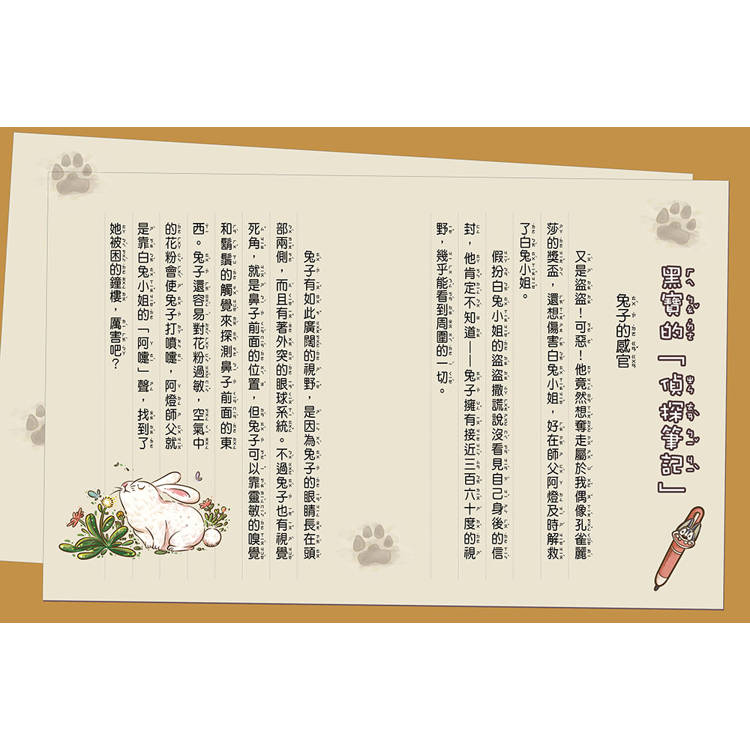 黑寶的「偵探筆記」
兔子的感官
又是盜盜！可惡！他竟然想奪走屬於我偶像孔雀麗
莎的獎盃，還想傷害白兔小姐，好在師父阿燈及時解救
了白兔小姐。
假扮白兔小姐的盜盜撒謊說沒看見自己身後的信
封，他肯定不知道——兔子擁有接近三百六十度的視
野，幾乎能看到周圍的一切。
兔子有如此廣闊的視野，是因為兔子的眼睛長在頭
部兩側，而且有著外突的眼球系統。不過兔子也有視覺
死角，就是鼻子前面的位置，但兔子可以靠靈敏的嗅覺
和鬍鬚的觸覺來探測鼻子前面的東
西。兔子還容易對花粉過敏，空氣中
的花粉會使兔子打噴嚏，阿燈師父就
是靠白兔小姐的「阿嚏」聲，找到了
她被困的鐘樓，厲害吧？